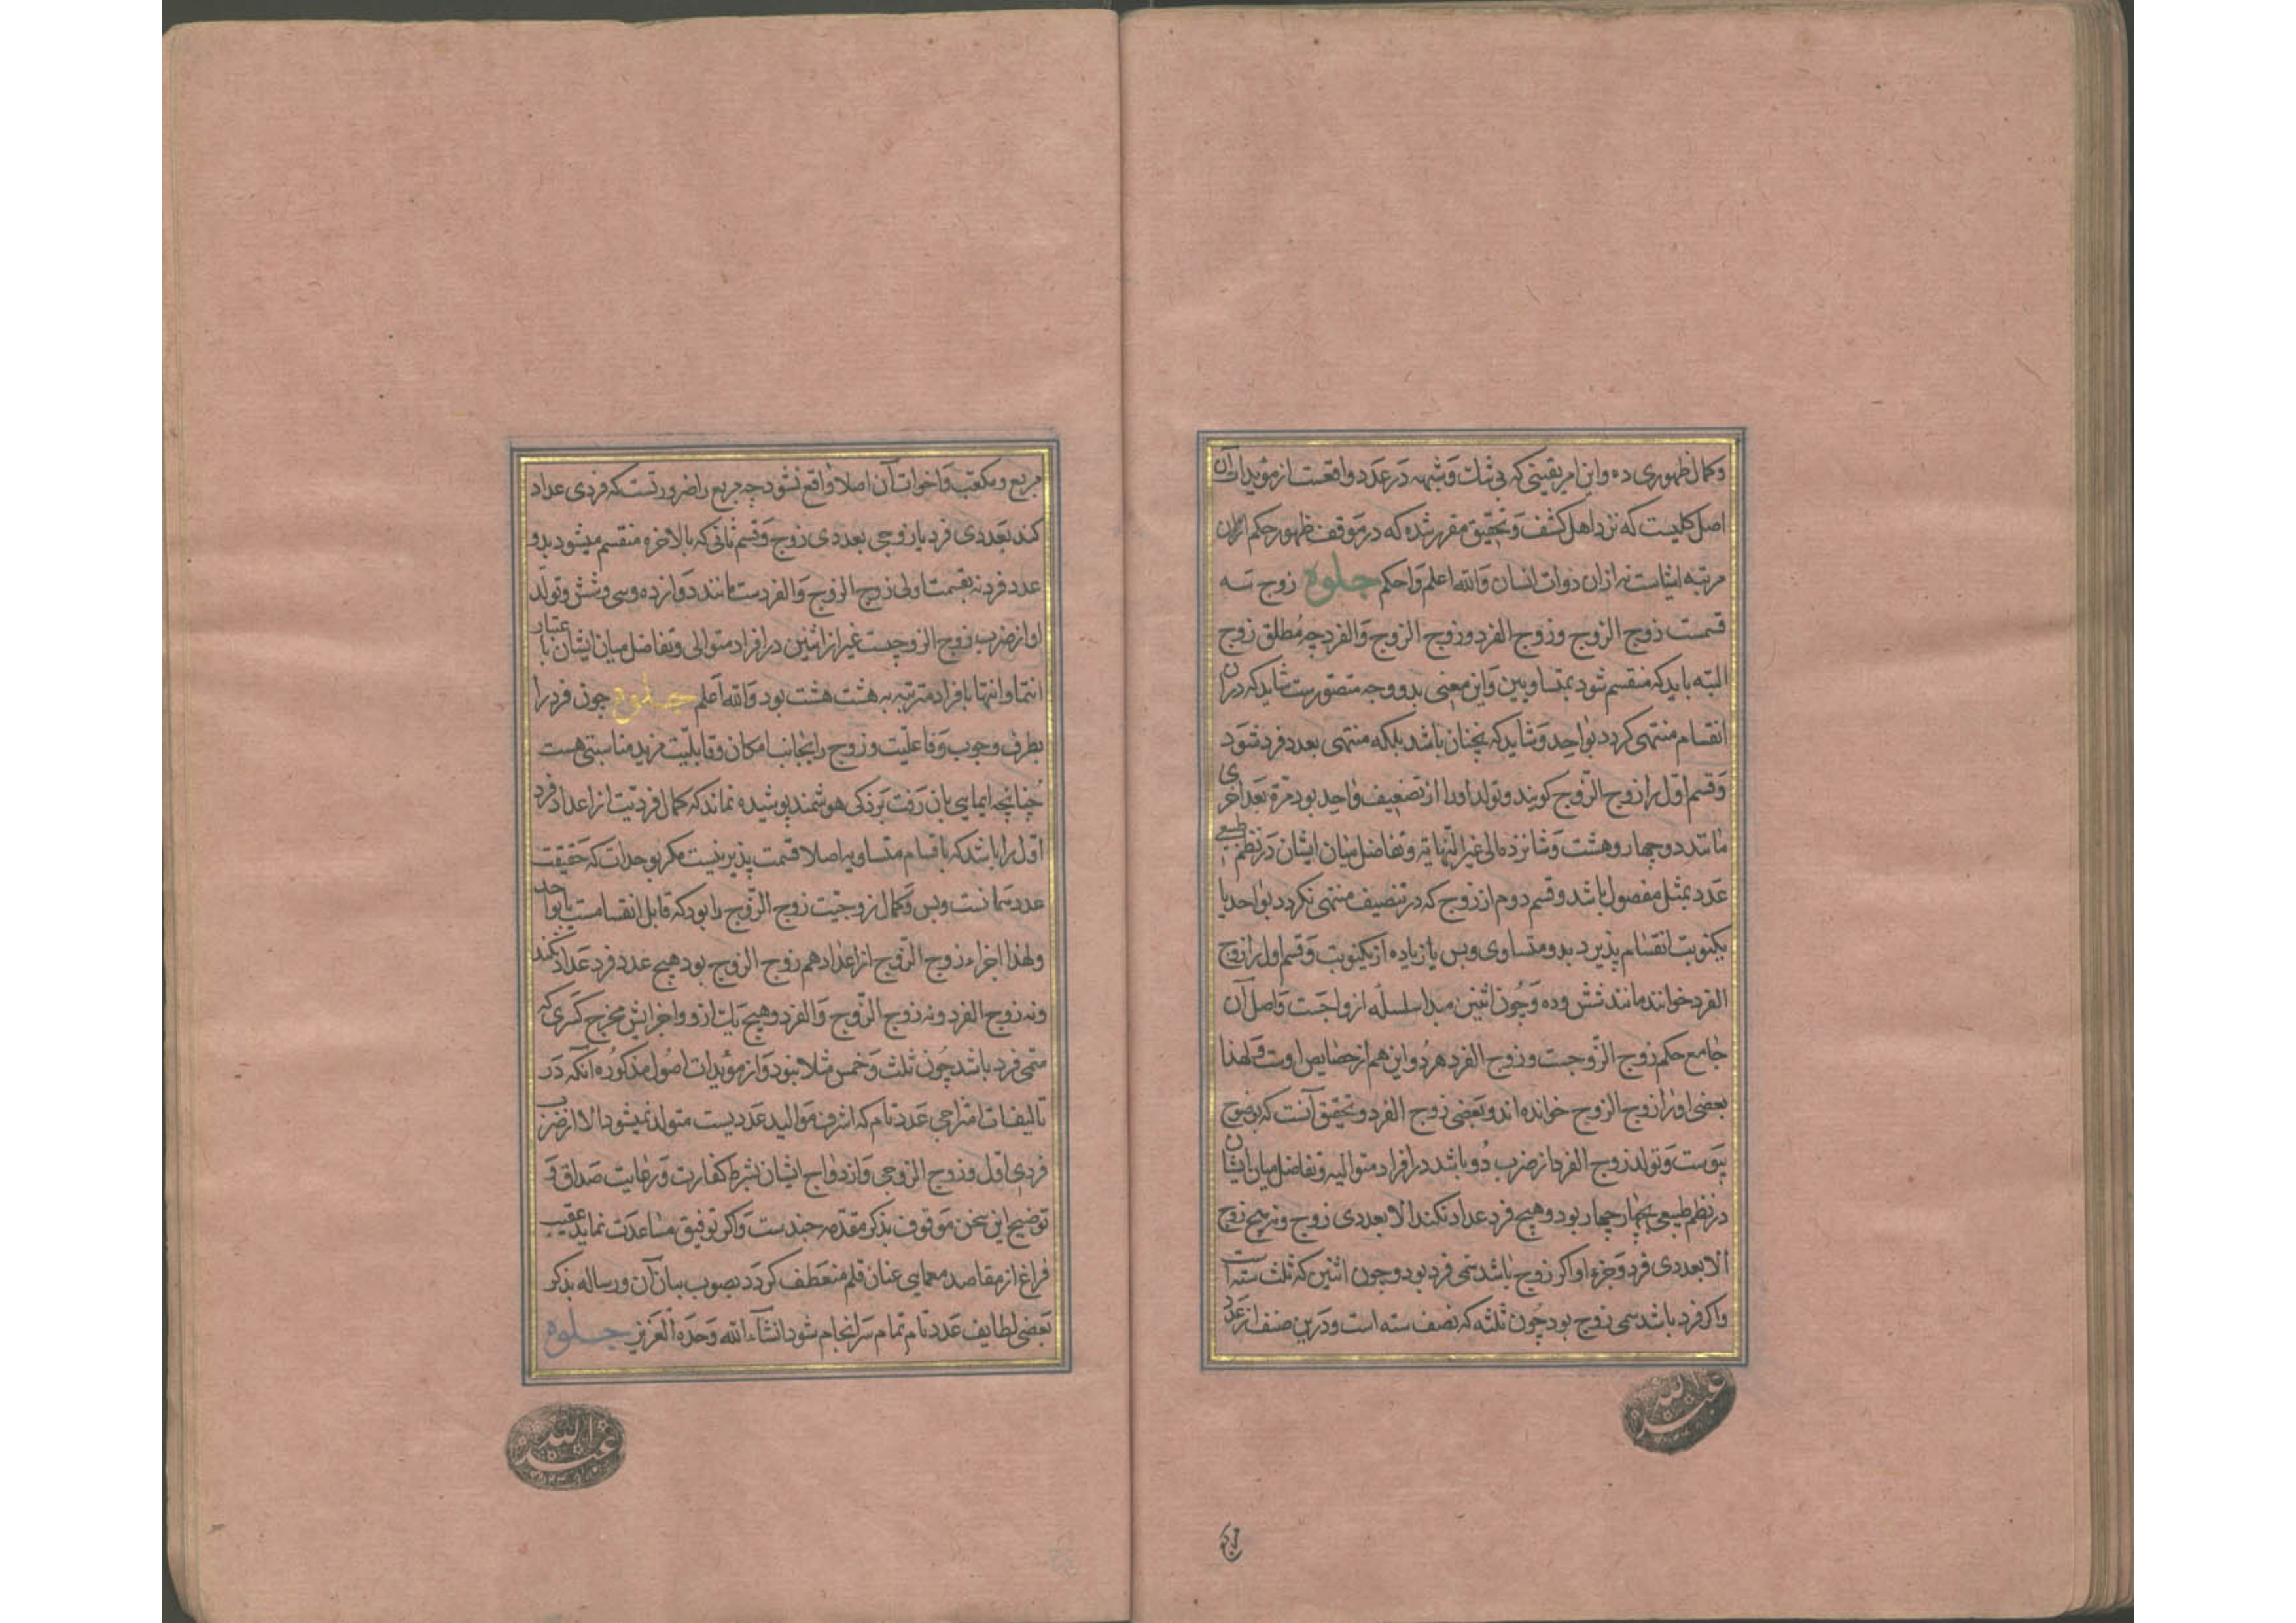 وکمال ظهوری ده و این امر یقینی که بی شک و شبهه در عدد واقعست از مؤیدات آن
اصل کلیست که نزد اهل کشف و تحقیق مقرر شده که در موقف ظهور حکم اکوان
مرتبه ایشاست نه از ان ذوات انسان والله اعلم واحکم جلوه زوج سه
قسمست زوج الزوج وزوج الفرد وزوج الزوج والفرد چه مطلق زوج
البته باید که منقسم شود بمتساویین و این معنی بدو وجه متصورست شاید که دران
انقسام منتهی کردد بواحد و شاید که نچنان باشد بلکه منتهی بعدد فرد شود
وقسم اول را زوج الزوج کویند وتولد اورا از تضعیف واحد بود مرة بعد اخری
مانند دو و چهار وهشت وشانزده الی غیر النهایة وتفاضل میان ایشان در نظم طبیعی
عدد بمثل مفصول باشد وقسم دوم از زوج که در تنصیف منتهی نکردد بواحد یا
یکنوبت انقسام پذیرد بدو متساوی وبس یا زیاده از یکنوبت وقسم اول را زوج
الفرد خوانند مانند شش وده وچون اثنین مبدا سلسله ازواجست واصل آن
جامع حکم زوج الزوجست وزوج الفرد هر دو واین هم از خصایص اوست ولهذا
بعضی اورا زوج الزوج خوانده اند وبعضی زوج الفرد وتحقیق آنست که بوضوح
پیوست وتولد زوج الفرد از ضرب دو باشد در افراد متوالیه وتفاضل میان ایشان
در نظم طبیعی بچهار چهار بود وهیچ فرد عداد نکند الا بعددی زوج ونه هیچ زوج
الا بعددی فرد وجزء او اکر زوج باشد سمی فرد بود وچون اثنین که ثلث سته است
واکر فرد باشد سمی زوج بود چون ثلثه که نصف سته است ودرین صنف از عدد
عبدالله
مربع
مربع ومکعب واخوات آن اصلا واقع نشود چه مربع را ضرورتست که فردی عداد
کند بعددی فرد یا زوجی بعددی زوج وقسم ثانی که بالاخره منقسم میشود بدو
عدد فرد نه بقسمت اولی زوج الزوج والفردست مانند دوازده وسی وشش وتولد
او از ضرب زوج الزوجیست غیر از اثنین در افراد متوالی وتفاضل میان ایشان باعتبار
انتما وانتها بافراد مترتبه به هشت هشت بود والله اعلم جلوه چون فرد را
بطرف وجوب وفاعلیت وزوج را بجانب امکان وقابلیت مزید مناسبتی هست
چنانچه ایمایی بان رفت بر ذکی هوشمند پوشیده نماند که کمال فردیت از اعداد فرد
اول را باشد که باقسام متساویه اصلا قسمت پذیر نیست مکر بوحدات که حقیقت
عدد همانست وبس وکمال زوجیت زوج الزوج را بود که قابل انقسامست تا بواحد
ولهذا اجزاء زوج الزوج از اعداد هم زوج الزوج بود هیچ عدد فرد عداد نکند
ونه زوج الفرد ونه زوج الزوج والفرد وهیچ یک ازو واجزایش مخرج کسری که
سمی فرد باشد چون ثلث وخمس مثلا نبود واز مؤیدات اصول مذکوره آنکه در
تالیفات امتزاجی عدد تام که اشرف موالید عددیست متولد نمیشود الا از ضرب
فردی اول وزوج الزوجی وازدواج ایشان بشرط کفارت ورعایت صداق و
توضیح این سخن موقوف بذکر مقدمه چندست واکر توفیق مساعدت نماید عقیب
فراغ از مقاصد معمایی عنان قلم منعطف کردد بصوب بیان آن ورساله بذکر
بعضی لطایف عدد تام تمام سرانجام شود انشآء الله وحده العزیز جلوه
عبدالله